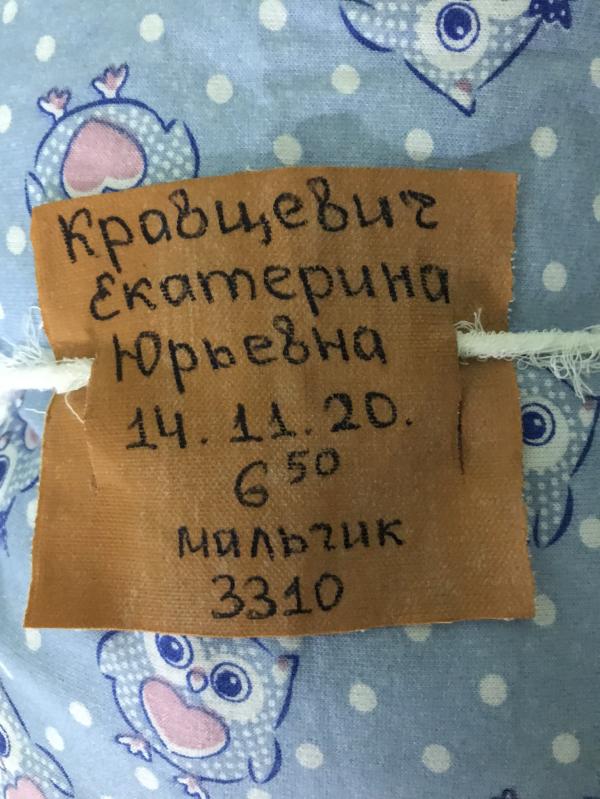 Кравцевич
Екатерина
Юрьевна
14.11.20.
6⁵⁰
мальчик
3310